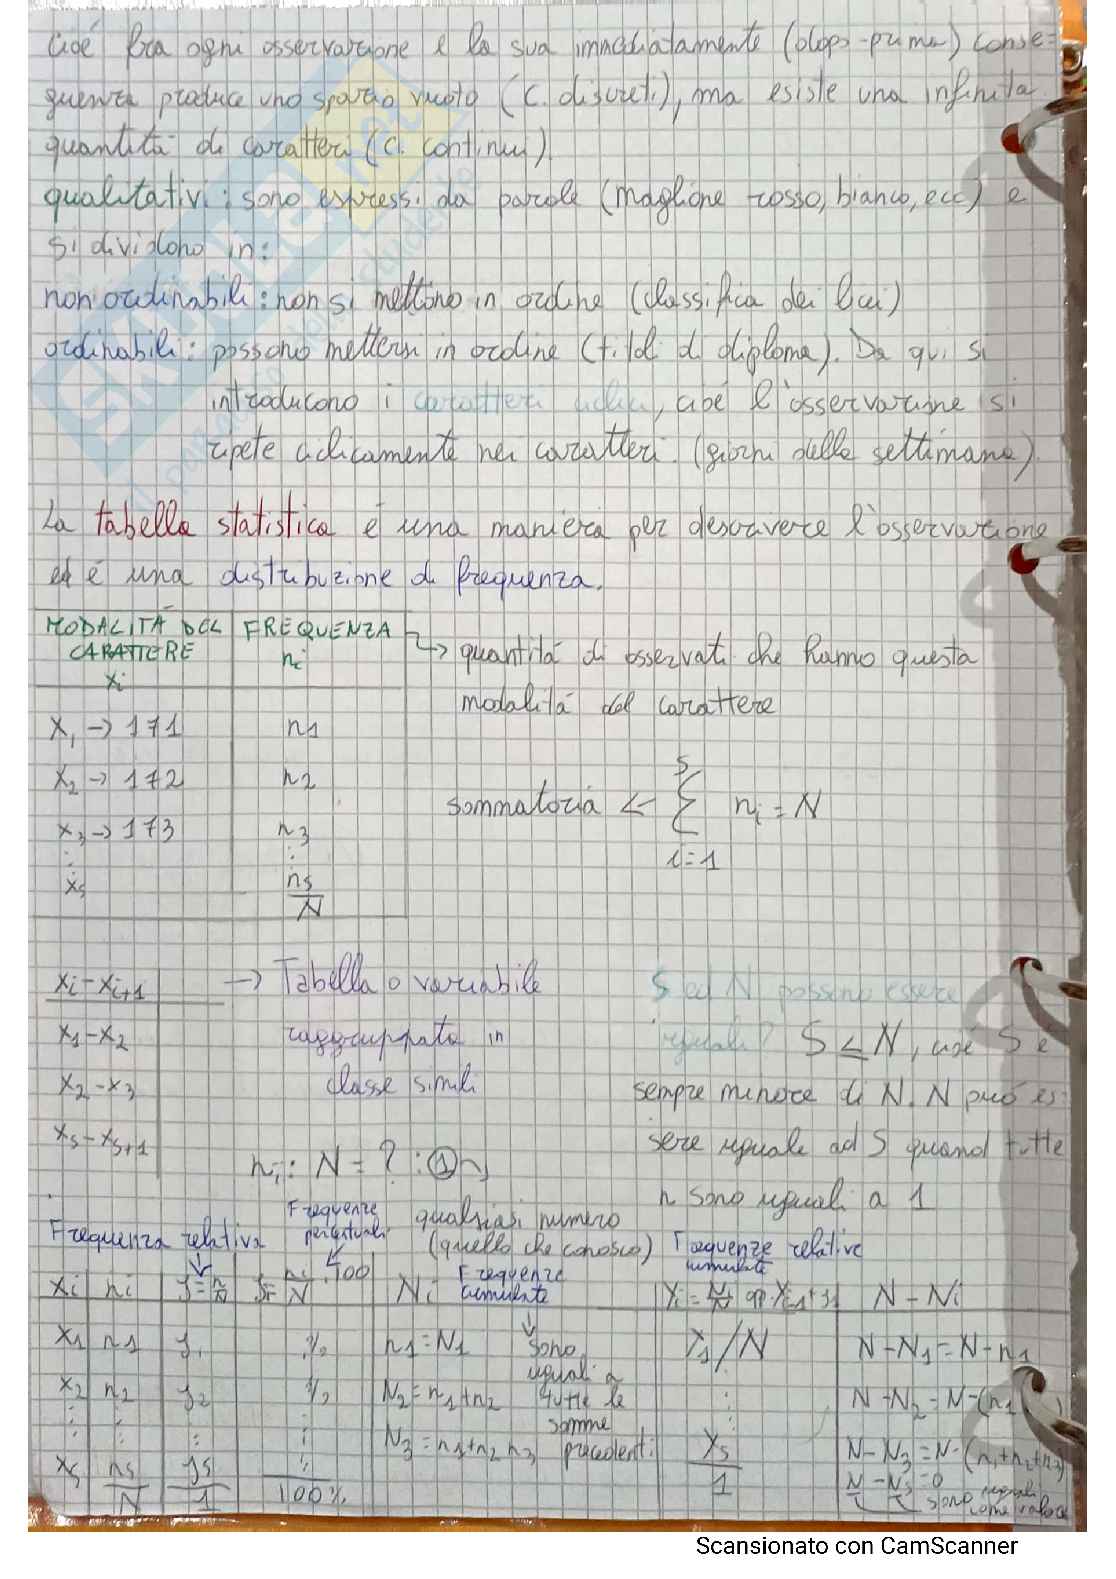 cioé fra ogni osservazione e la sua immediatamente (dopo-prima) conse=
guenza produce uno spazio vuoto (c. discreti), ma esiste una infinita
quantità di caratteri (c. continui).
qualitativi: sono espressi da parole (maglione rosso, bianco, ecc) e
si dividono in:
non ordinabili: non si mettono in ordine (classifica dei)
ordinabili: possono mettersi in ordine (titoli di diploma). Da qui si
introducono i caratteri ciclici, cioé l'osservazione si
ripete ciclicamente nei caratteri. (giorni della settimana)
La tabella statistica é una maniera per descrivere l'osservazione
ed é una distribuzione di frequenza.
MODALITÁ DEL CARATTERE xi | FREQUENZA ni
↳ quantità di osservati che hanno questa
modalità del carattere
x1 → 171 n1
x2 → 172 n2
x3 → 173 n3
⋮ ⋮
xs ns
N
sommatoria ← s ∑ i=1 ni = N
xi - xi+1 → Tabella o variabile
x1 - x2 raggruppata in
x2 - x3 classe simili
xs - xs+1
S ed N possono essere
uguali? S ≤ N, cioé S é
sempre minore di N. N può es=
sere uguale ad S quand tutte
n sono uguali a 1
ni : N = ? : 1
qualsiasi numero
(quello che conosco)
Frequenza relativa
Frequenze percentuali
Frequenze cumulate
Frequenze relative cumulate
xi ni ni/N · 100 Ni N - Ni
x1 n1 % n1 = N1 N - N1 = N - n1
x2 n2 % N2 = n1 + n2 N - N2 = N - (n1
⋮ ⋮ N3 = n1 + n2 n3 N - N3 = N - (n1 + n2 + n3)
sono
uguali a
tutte le
somme
precedenti
xs ns
N 1 100% 1
sono uguali
come valore
Scansionato con CamScanner